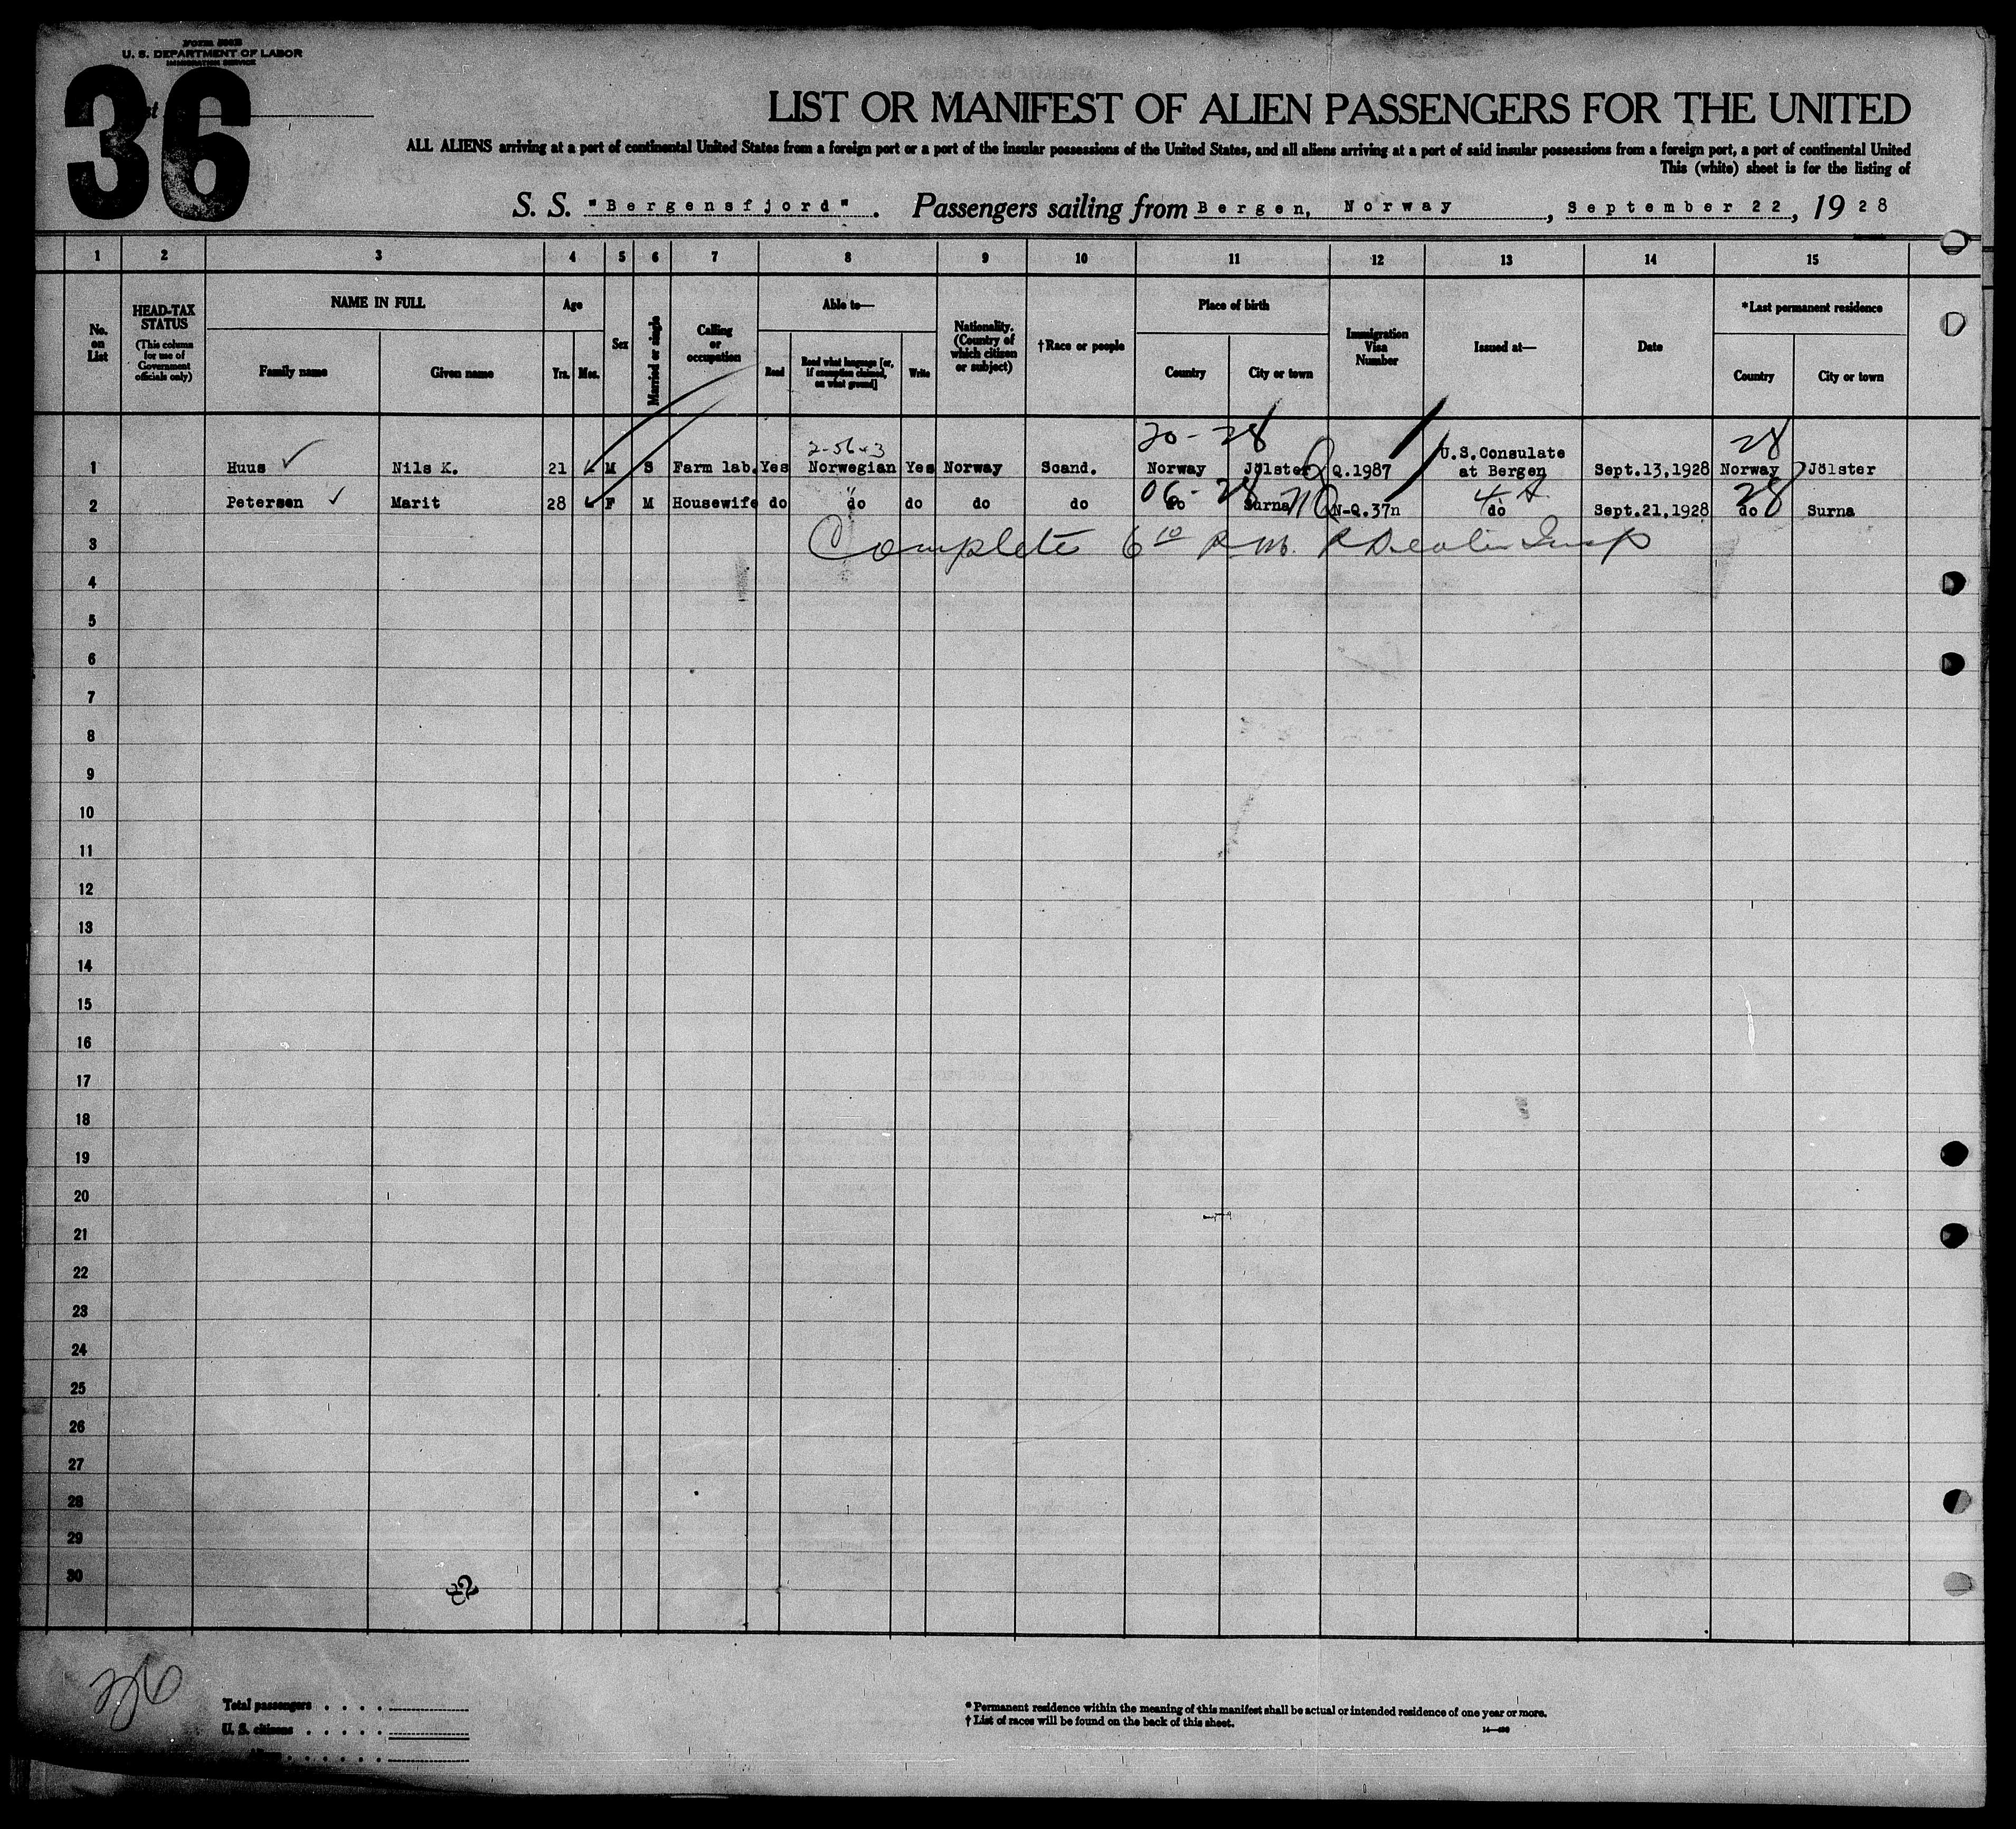 Form 500B
U. S. DEPARTMENT OF LABOR
IMMIGRATION SERVICE
36
LIST OR MANIFEST OF ALIEN PASSENGERS FOR THE UNITED
ALL ALIENS arriving at a port of continental United States from a foreign port or a port of the insular possessions of the United States, and all aliens arriving at a port of said insular possessions from a foreign port, a port of continental United
This (white) sheet is for the listing of
S. S. "Bergensfjord". Passengers sailing from Bergen, Norway, September 22, 1928
1 2 3 4 5 6 7 8 9 10 11 12 13 14 15
No. on List
HEAD-TAX STATUS (This column for use of Government officials only)
NAME IN FULL
Family name Given name
Age
Yrs. Mos.
Sex
Married or single
Calling or occupation
Able to—
Read Read what language [or, if exemption claimed, on what ground] Write
Nationality. (Country of which citizen or subject)
†Race or people
Place of birth
Country City or town
Immigration Visa Number
Issued at—
Date
*Last permanent residence
Country City or town
20-28 28
1 Huus ✓ Nils K. 21 M S Farm lab. Yes Norwegian Yes Norway Scand. Norway Jölster Q.1987 U.S.Consulate at Bergen Sept.13,1928 Norway Jölster
06-28 28
2 Petersen ✓ Marit 28 F M Housewife do do do do do do Surna N-Q.37n do Sept.21,1928 do Surna
3 Complete 6 10 P.M. Insp
4
5
6
7
8
9
10
11
12
13
14
15
16
17
18
19
20
21
22
23
24
25
26
27
28
29
30
Total passengers
U. S. citizens
* Permanent residence within the meaning of this manifest shall be actual or intended residence of one year or more.
† List of races will be found on the back of this sheet.